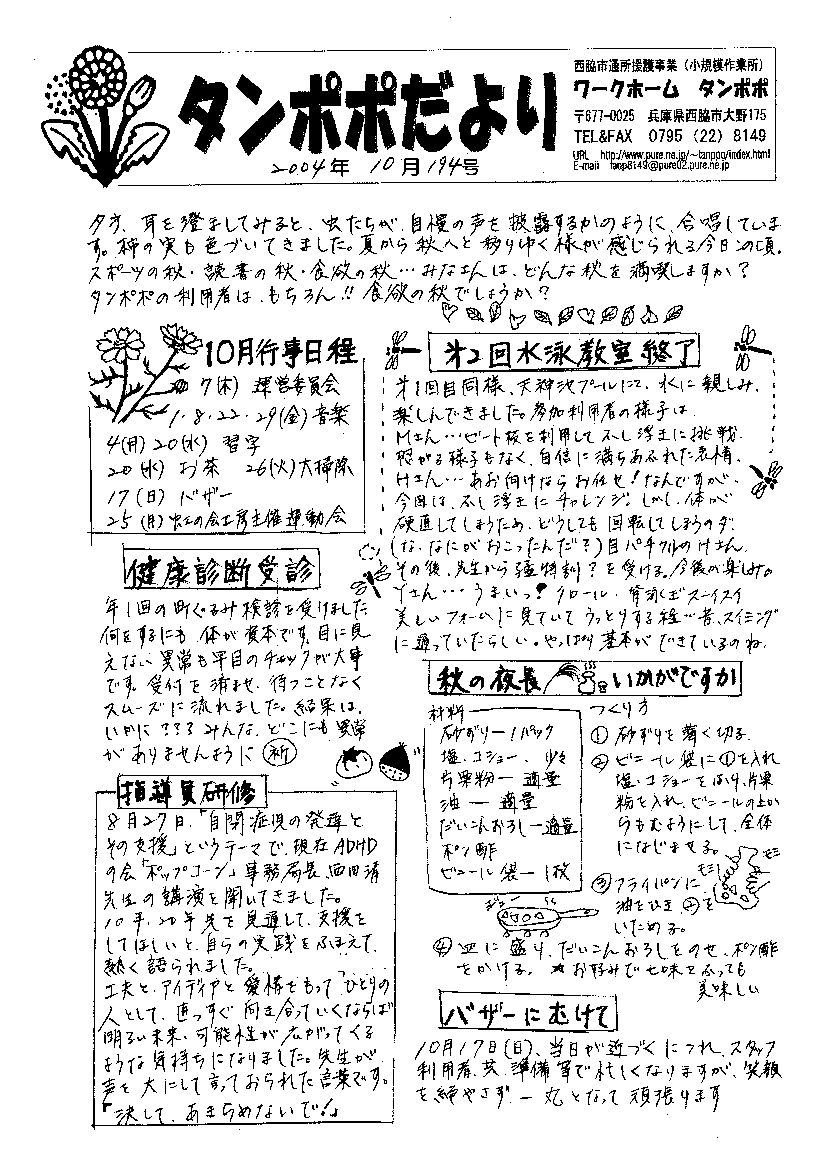 タンポポだより
2004年 10月 194号
西脇市通所援護事業(小規模作業所)
ワークホーム タンポポ
〒677-0025 兵庫県西脇市大野175
TEL&FAX 0795 (22) 8149
URL http://www.pure.ne.jp/~tanppo/index.html
E-mail tanp8149@pure02.pure.ne.jp
夕方、耳を澄ましてみると、虫たちが、自慢の声を披露するかのように、合唱していま
す。柿の実も色づいてきました。夏から秋へと移りゆく様が感じられる今日この頃。
スポーツの秋・読書の秋・食欲の秋…みなさんは、どんな秋を満喫しますか?
タンポポの利用者は、もちろん!!食欲の秋でしょうか?
10月行事日程
7(木) 運営委員会
1.8.22.29(金)音楽
4(月)20(水) 習字
20(水) お茶 26(火)大掃除
17(日) バザー
25(月)虹の会工房主催運動会
健康診断受診
年1回の町ぐるみ検診を受けました
何をするにも、体が資本です。目に見
えない異常も平日のチェックが大事
です。受付を済ませ、待つことなく
スムーズに流れました。結果は、
いかに???みんな、どこにも異常
がありませんように 祈
指導員研修
8月27日、「自閉症児の発達と
その支援」というテーマで、現在ADHD
の会「ポップコーン」事務局長、西田清
先生の講演を聞いてきました。
10年、20年先を見通して、支援を
してほしいと、自らの実践をふまえて、
熱く語られました。
工夫と、アイディアと愛情をもって、ひとりの
人として、真っすぐ向き合っていくならば
明るい未来、可能性が広がってくる
ような気持ちになりました。先生が、
声を大にして言っておられた言葉です。
「決して、あきらめないで!」
第2回水泳教室終了
第1回目同様、天神池プールにて、水に親しみ、
楽しんできました。参加利用者の様子は、
Mさん…ビート板を利用してふし浮きに挑戦。
怖がる様子もなく、自信に満ちあふれた表情。
Hさん…あお向けならお任せ!なんですが、
今回は、ふし浮きにチャレンジ。しかし、体が
硬直してしまうため、どうしても回転してしまうのダ。
(な、なにがおこったんだ?)目パチクリのHさん。
その後、先生から強特訓?を受ける。今後が楽しみ。
Yさん…うまいっ!クロール・背泳ぎスーイスイ
美しいフォームに見ていてうっとりする程で昔、スイミング
に通っていたらしい。やっぱり基本ができているのね。
秋の夜長 いかがですか
材料
砂ずり―1パック
塩、コショー、少々
片栗粉― 適量
油 ― 適量
だいこんおろし―適量
ポン酢
ビニール袋―1枚
つくり方
① 砂ずりを薄く切る。
② ビニール袋に①を入れ
塩、コショーをふり、片栗
粉を入れ、ビニールの上か
らもむようにして、全体
になじませる。
モミ
モミ
③ フライパンに
油をひき②を
いためる。
ジュー
④ 皿に盛り、だいこんおろしをのせ、ポン酢
をかける。 ★お好みで七味をふっても
美味しい
バザーにむけて
10月17日(日)、当日が近づくにつれ、スタッフ
利用者、共、準備等で忙しくなりますが、笑顔
を絶やさず、一丸となって頑張ります